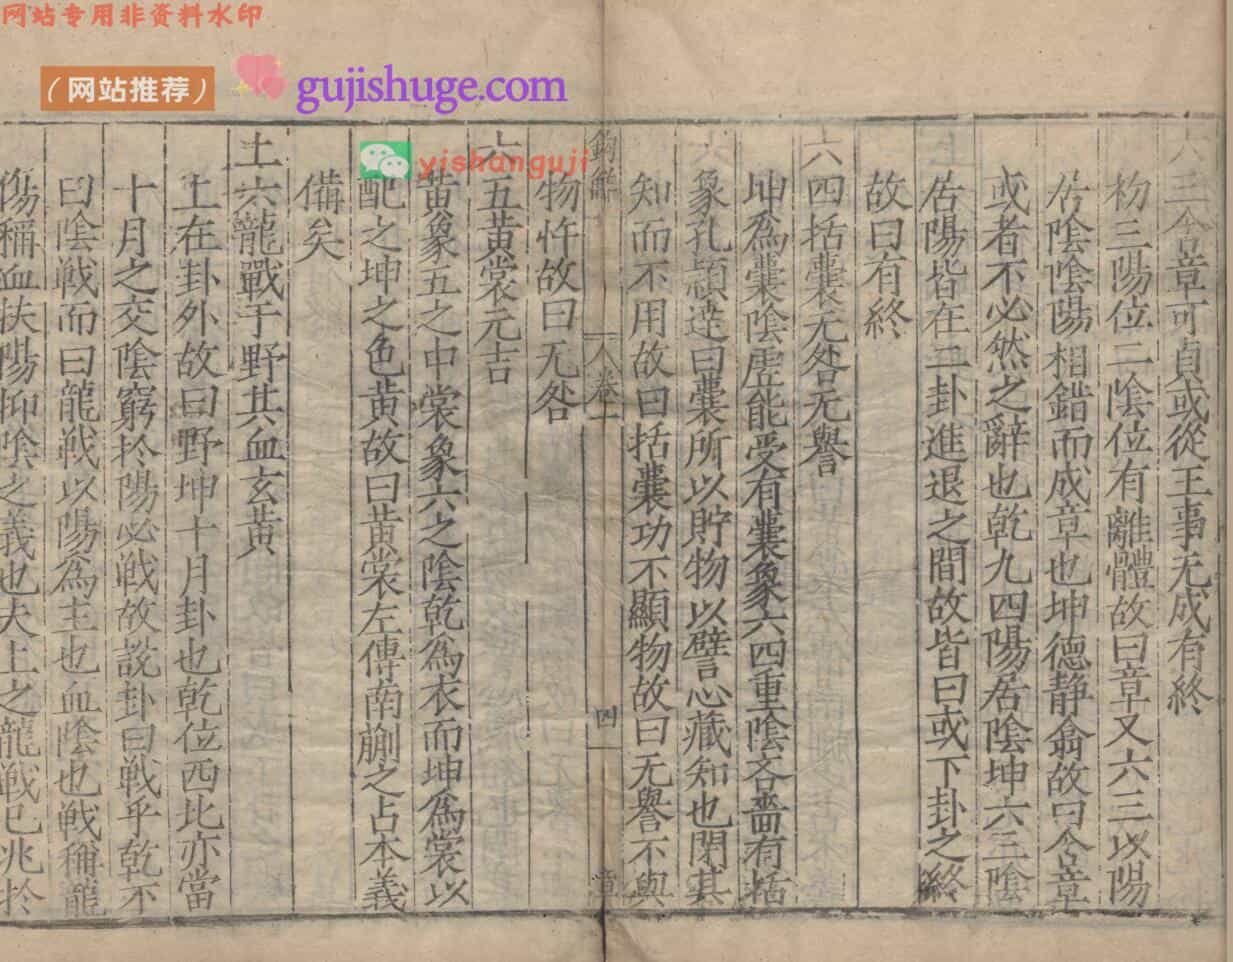 网站专用非资料水印
（网站推荐）
gujishuge.com
yishanguji
六三含章可貞或從王事无成有終
物三陽位二陰位有離體故曰章又六三以陽
居陰陰陽相錯而成章也坤德静翕故曰含章
或者不必然之辭也乾九四陽居陰坤六三陰
居陽皆在二卦進退之間故皆曰或下卦之終
故曰有終
六四括囊无咎无譽
坤爲囊陰虛能受有囊象六四重陰吝嗇有括
象孔頴逹曰囊所以貯物以譬心藏知也閉其
知而不用故曰括囊功不顯物故曰无譽不與
卷一
四
物忤故曰无咎
六五黄裳元吉
黄象五之中裳象六之陰乾爲衣而坤爲裳以
配之坤之色黄故曰黄裳左傳南蒯之占本義
備矣
上六龍戰于野其血玄黄
上在卦外故曰野坤十月卦也乾位西北亦當
十月之交陰窮扵陽必戦故說卦曰戦乎乾不
曰陰戦而曰龍戦以陽爲主也血陰也戦稱龍
傷稱血扶陽抑陰之義也夫上之龍戦已兆扵